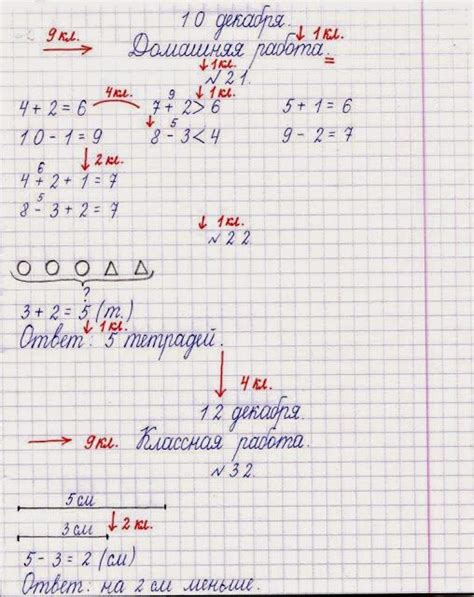 10 декабря.
9 кл. Домашняя работа. 1 кл.
1 кл.
№ 21.
4 кл. 9 1 кл.
4 + 2 = 6 7 + 2 > 6 5 + 1 = 6
5
10 - 1 = 9 8 - 3 < 4 9 - 2 = 7
2 кл.
6
4 + 2 + 1 = 7
5
8 - 3 + 2 = 7
1 кл.
№ 22
?
3 + 2 = 5 (т.)
1 кл.
Ответ: 5 тетрадей.
4 кл.
12 декабря.
9 кл. Классная работа.
№ 32.
5 см
3 см 2 кл.
5 - 3 = 2 (см)
Ответ: на 2 см меньше.